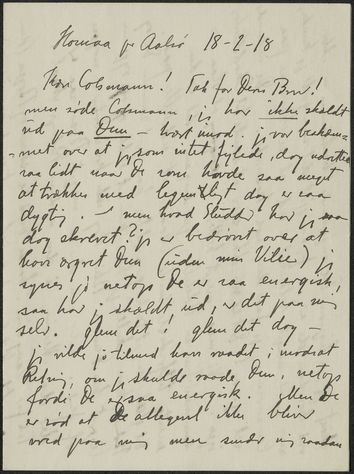 Hornaa pr Aalsø 18-2-18
Kære Colsmann! Tak for Deres Brev!
men søde Colsmann, jeg har ikke skældt
ud paa Dem - tvært imod. jeg var bekym-
met over at jeg som intet fejlede, dog udrettede
saa lidt naar De som havde saa meget
at trækkes med legemligt dog er saa
dygtig. - men hvad Sludder har jeg
dog skrevet? jeg er bedrøvet over at
have ærgret Dem (uden min Vilje) jeg
synes jo netop De er saa energisk,
saa har jeg skældt ud, er det paa mig
selv. glem det! glem det dog -
jeg vilde jo tilmed have raadet i modsat
Retning, om jeg skulde raade Dem, netop
fordi De er saa energisk. Men De
er sød at De alligevel ikke bliver
vred paa mig men sender mig saadan